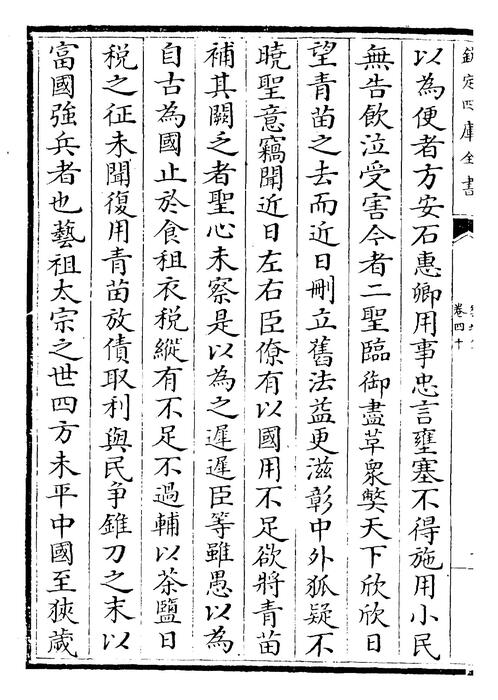 欽定四庫全書
卷四十
以為便者方安石惠卿用事忠言壅塞不得施用小民
無告飲泣受害今者二聖臨御盡草眾弊天下欣欣日
望青苗之去而近日刪立舊法益更滋彰中外狐疑不
曉聖意竊聞近日左右臣僚有以國用不足欲將青苗
補其闕乏者聖心未察是以為之遲遲臣等雖愚以為
自古為國止於食租衣稅縱有不足不過輔以茶鹽日
稅之征未聞復用青苗放債取利與民争錐刀之末以
富國強兵者也藝祖太宗之世四方未平中國至狹歲